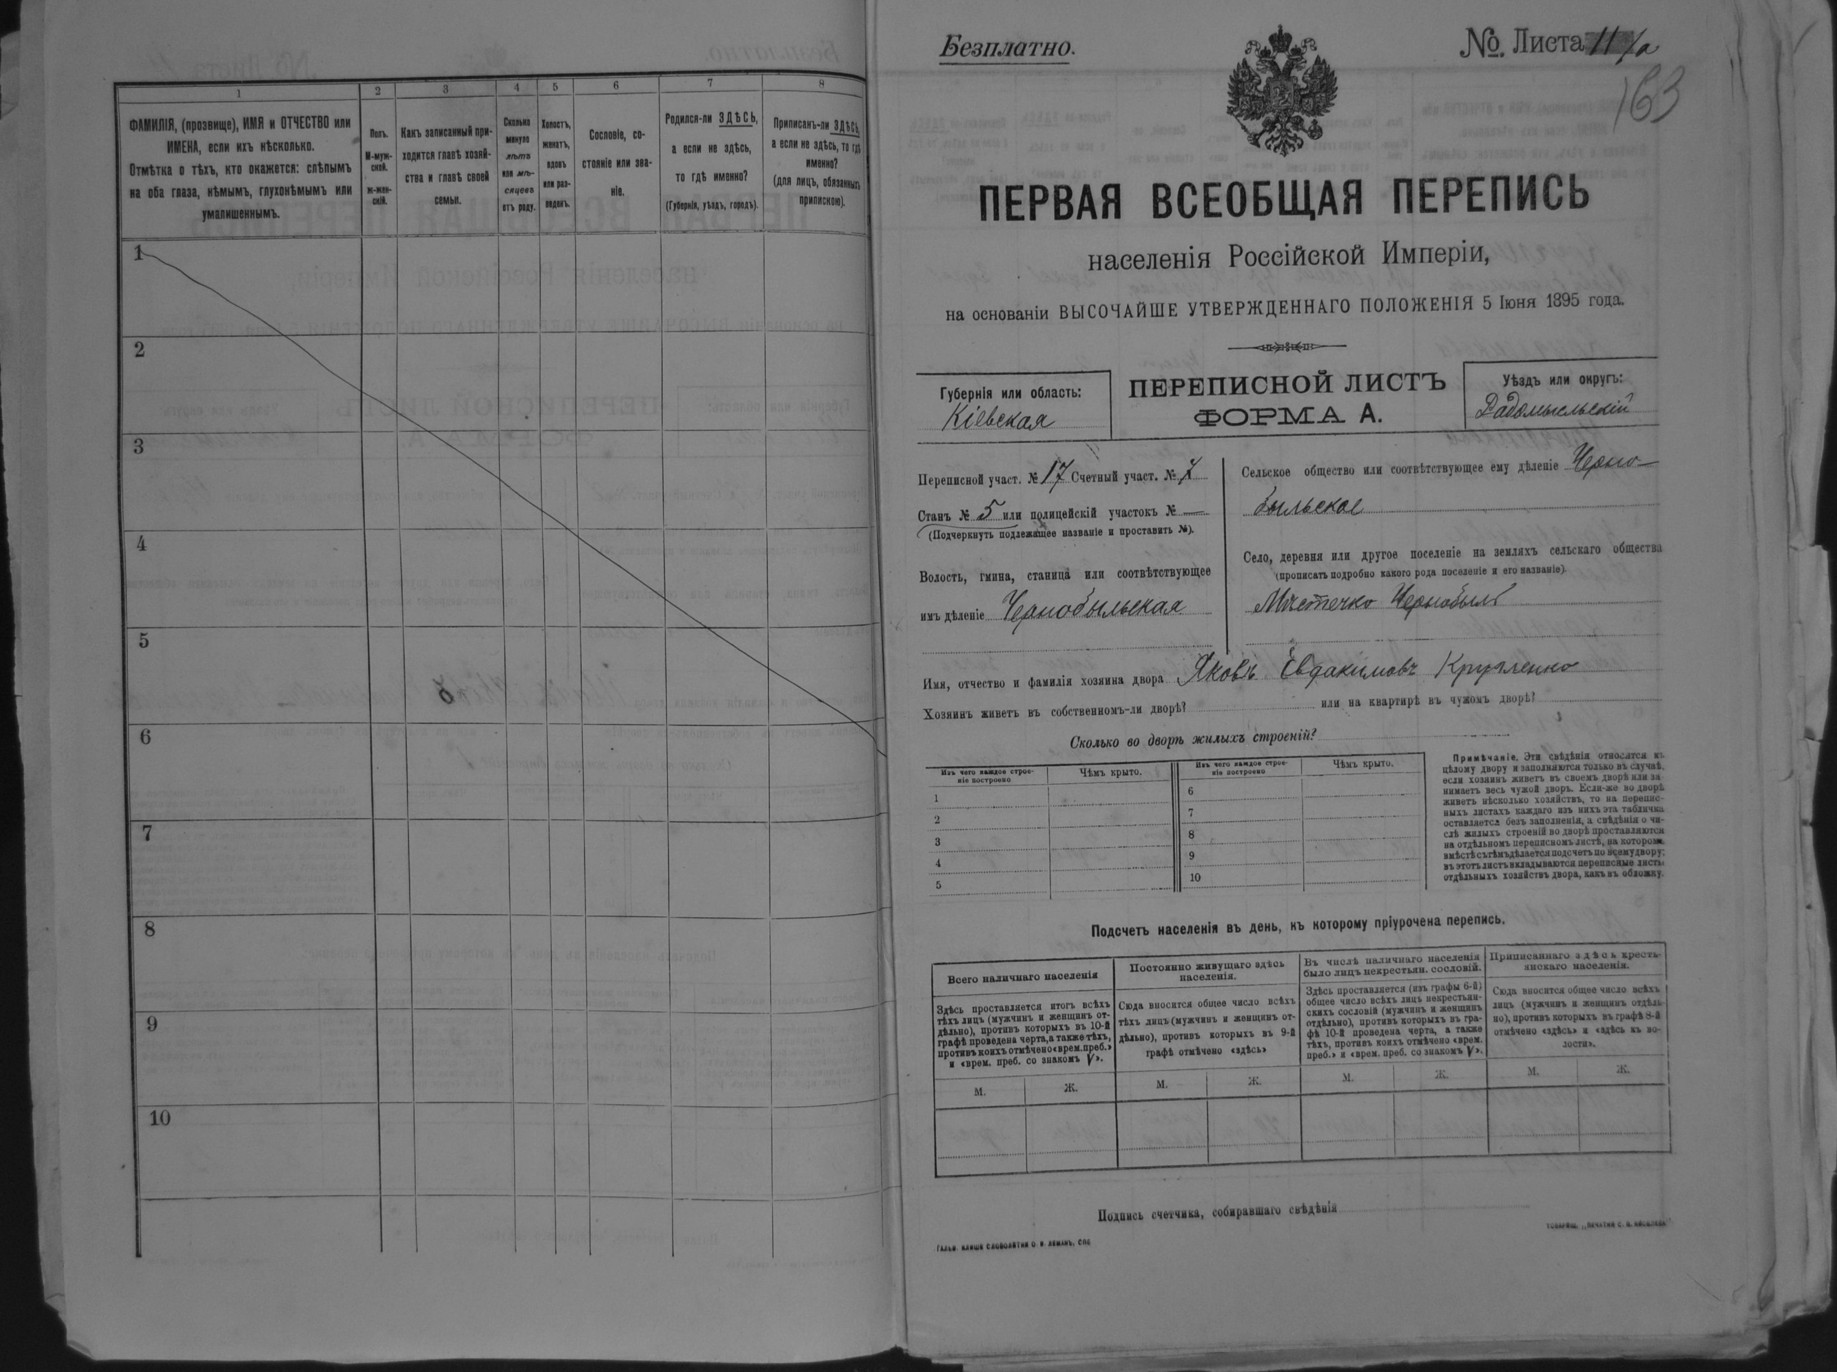 1 2 3 4 5 6 7 8
ФАМИЛІЯ, (прозвище), ИМЯ и ОТЧЕСТВО или
ИМЕНА, если ихъ нѣсколько.
Отмѣтка о тѣхъ, кто окажется: слѣпымъ
на оба глаза, нѣмымъ, глухонѣмымъ или
умалишеннымъ.
Полъ.
М-муж-
ской.
ж-жен-
скій.
Какъ записанный при-
ходится главѣ хозяй-
ства и главѣ своей
семьи.
Сколько
минуло
лѣтъ
или мѣ-
сяцевъ
отъ роду.
Холостъ,
женатъ,
вдовъ
или раз-
веденъ.
Сословіе, со-
стояніе или зва-
ніе.
Родился-ли ЗДѢСЬ,
а если не здѣсь,
то гдѣ именно?
(Губернія, уѣздъ, городъ).
Приписанъ-ли ЗДѢСЬ,
а если не здѣсь, то гдѣ
именно?
(для лицъ, обязанныхъ
припискою).
1
2
3
4
5
6
7
8
9
10
Безплатно.
№ Листа 11 1/а
163
ПЕРВАЯ ВСЕОБЩАЯ ПЕРЕПИСЬ
населенія Россійской Имперіи,
на основаніи ВЫСОЧАЙШЕ УТВЕРЖДЕННАГО ПОЛОЖЕНІЯ 5 Іюня 1895 года.
Губернія или область:
Кіевская
ПЕРЕПИСНОЙ ЛИСТЪ
ФОРМА А.
Уѣздъ или округъ:
Радомысльскій
Переписной участ. № 17 Счетный участ. № 7
Станъ № 5 или полицейскій участокъ № —
(Подчеркнуть подлежащее названіе и проставить №).
Волость, гмина, станица или соотвѣтствующее
имъ дѣленіе Чернобыльская
Сельское общество или соотвѣтствующее ему дѣленіе Черно-
быльское
Село, деревня или другое поселеніе на земляхъ сельскаго общества
(прописать подробно какого рода поселеніе и его названіе).
Мѣстечко Чернобыль
Имя, отчество и фамилія хозяина двора Яковъ Евдакимовъ Кругленко
Хозяинъ живетъ въ собственномъ-ли дворѣ? или на квартирѣ въ чужомъ дворѣ?
Сколько во дворѣ жилыхъ строеній?
Изъ чего каждое строе-
ніе построено
Чѣмъ крыто.
Изъ чего каждое строе-
ніе построено
Чѣмъ крыто.
1 6
2 7
3 8
4 9
5 10
Примѣчаніе. Эти свѣдѣнія относятся къ
цѣлому двору и заполняются только въ случаѣ,
если хозяинъ живетъ въ своемъ дворѣ или за-
нимаетъ весь чужой дворъ. Если-же во дворѣ
живетъ нѣсколько хозяйствъ, то на перепис-
ныхъ листахъ каждаго изъ нихъ эта табличка
оставляется безъ заполненія, а свѣдѣнія о чи-
слѣ жилыхъ строеній во дворѣ проставляются
на отдѣльномъ переписномъ листѣ, на которомъ
вмѣстѣ съ тѣмъ дѣлается подсчетъ по всему двору;
въ этотъ листъ вкладываются переписные листы
отдѣльныхъ хозяйствъ двора, какъ въ обложку.
Подсчетъ населенія въ день, къ которому пріурочена перепись.
Всего наличнаго населенія
Постоянно живущаго здѣсь
населенія.
Въ числѣ наличнаго населенія
было лицъ некрестьян. сословій.
Приписаннаго здѣсь кресть-
янскаго населенія.
Здѣсь проставляется итогъ всѣхъ
тѣхъ лицъ (мужчинъ и женщинъ от-
дѣльно), противъ которыхъ въ 10-й
графѣ проведена черта, а также тѣхъ,
противъ коихъ отмѣчено «врем. преб.»
и «врем. преб. со знакомъ V».
Сюда вносится общее число всѣхъ
тѣхъ лицъ (мужчинъ и женщинъ от-
дѣльно), противъ которыхъ въ 9-й
графѣ отмѣчено «здѣсь»
Здѣсь проставляется (изъ графы 6-й)
общее число всѣхъ лицъ некрестьян-
скихъ сословій (мужчинъ и женщинъ
отдѣльно), противъ которыхъ въ гра-
фѣ 10-й проведена черта, а также
тѣхъ, противъ коихъ отмѣчено «врем.
преб.» и «врем. преб. со знакомъ V».
Сюда вносится общее число всѣхъ
лицъ (мужчинъ и женщинъ отдѣль-
но), противъ которыхъ въ графѣ 8-й
отмѣчено «здѣсь» и «здѣсь въ во-
лости».
М. Ж. М. Ж. М. Ж. М. Ж.
Подпись счетчика, собиравшаго свѣдѣнія
ГАЛЬВ. КЛИШЕ СЛОВОЛИТНИ О. И. ЛЕМАНЪ, СПБ